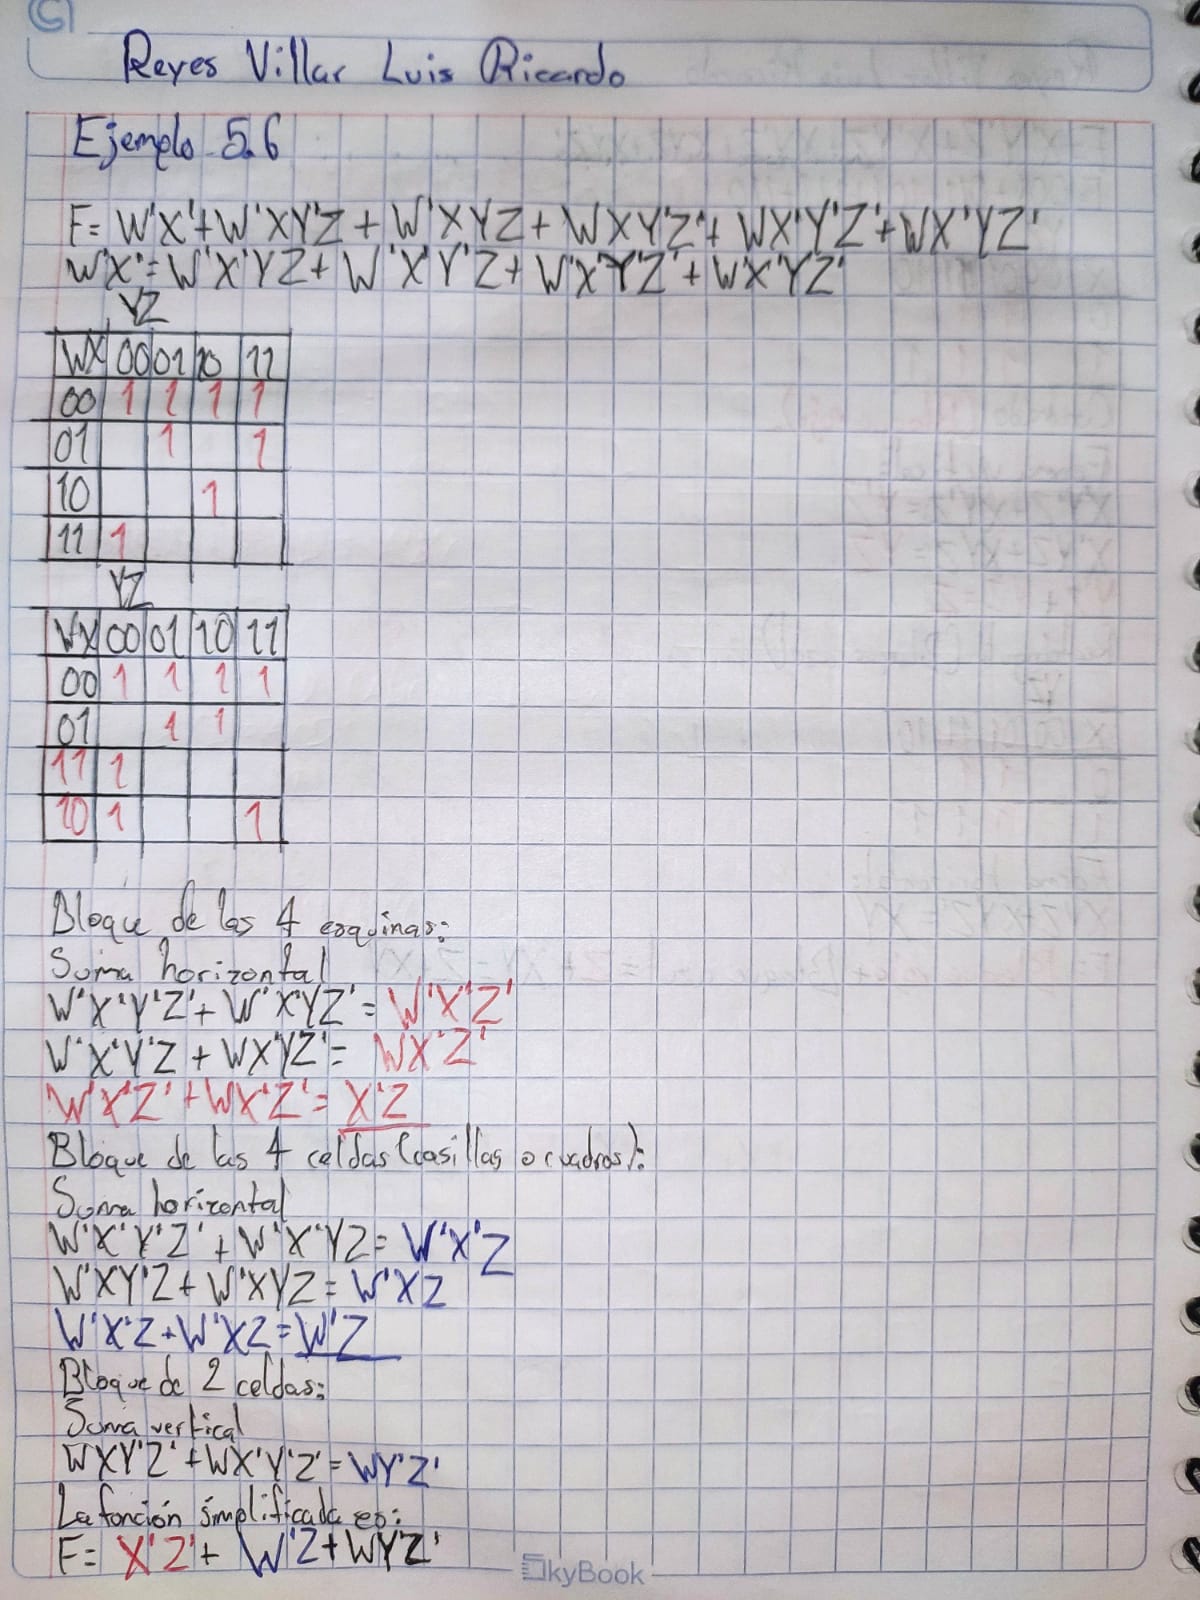 Reyes Villar Luis Ricardo
Ejemplo 5.6
F= W'X'+W'XY'Z + W'XYZ + WXY'Z'+ WX'Y'Z'+WX'YZ'
W'X'= W'X'YZ+ W'X'Y'Z+ W'X'Y'Z' + W'X'YZ'
YZ
WX 00 01 10 11
00 1 1 1 1
01 1 1
10 1
11 1
YZ
WX 00 01 10 11
00 1 1 1 1
01 1 1
11 1
10 1 1
Bloque de las 4 esquinas:
Suma horizontal
W'X'Y'Z'+ W'X'YZ'= W'X'Z'
W'X'Y'Z + WX'YZ'= WX'Z'
W'X'Z' +WX'Z'= X'Z
Bloque de las 4 celdas (casillas o cuadros):
Suma horizontal
W'X'Y'Z' + W'X'YZ= W'X'Z
W'XY'Z+ W'XYZ= W'XZ
W'X'Z+W'XZ=W'Z
Bloque de 2 celdas:
Suma vertical
WXY'Z' +WX'Y'Z'= WY'Z'
La función simplificada es:
F= X'Z'+ W'Z+WY'Z'
SkyBook